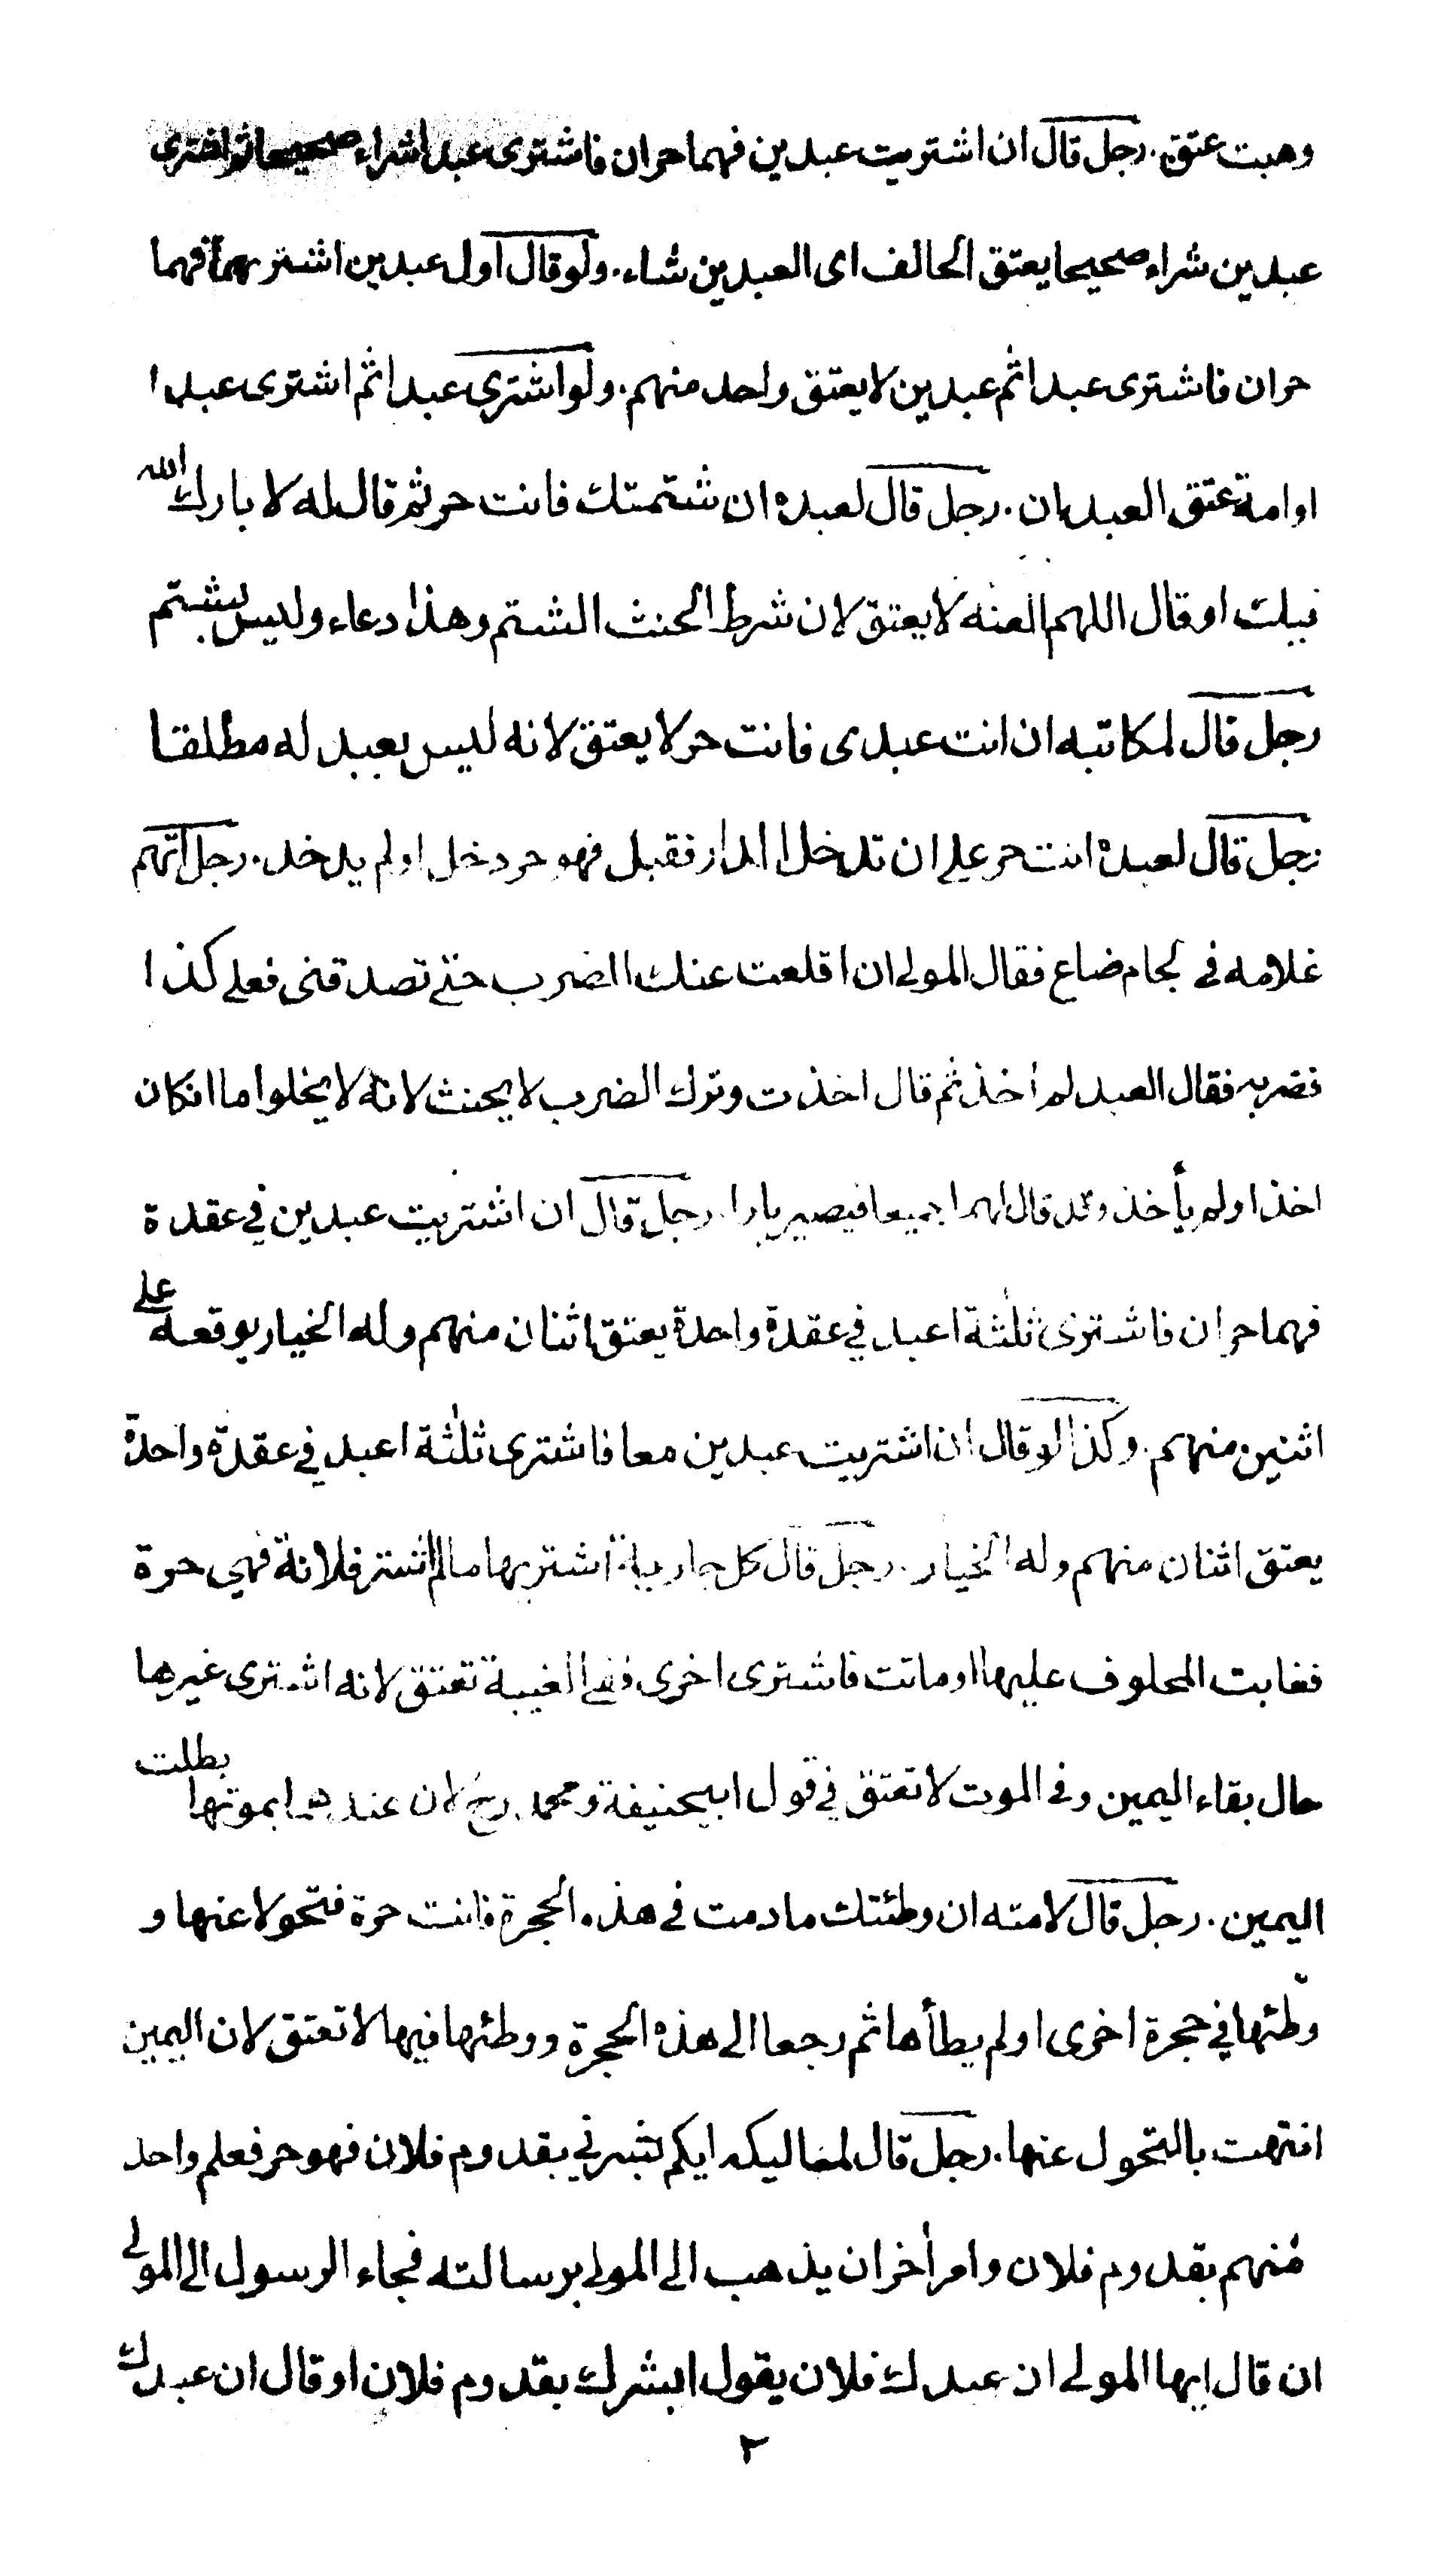 وهبت عتق. رجل قال ان اشتريت عبدين فهما حران فاشترى عبدا شراء صحيحا ثم اشترى
عبدين شراء صحيحا يعتق الحالف اى العبدين شاء. ولو قال اول عبدين اشتريهما فهما
حران فاشترى عبدا ثم عبدين لا يعتق واحد منهم. ولو اشترى عبدا ثم اشترى عبدا
او امة عتق العبدان. رجل قال لعبده ان شتمتك فانت حر ثم قال له لا بارك الله
فيك او قال اللهم العنه لا يعتق لان شرط الحنث الشتم وهذا دعاء وليس بشتم
رجل قال لمكاتبه ان انت عبدى فانت حر لا يعتق لانه ليس بعبد له مطلقا
رجل قال لعبده انت حر على ان تدخل الدار فقبل فهو حر دخل او لم يدخل. رجل اتهم
غلامه في لجام ضاع فقال المولى ان اقلعت عنك الضرب حتى تصدقنى فعلى كذا
فضربه فقال العبد لم أخذ ثم قال اخذت وترك الضرب لا يحنث لانه لا يخلوا ما انكان
اخذ او لم يأخذ وقد قال لهما جميعا فيصير بارا. رجل قال ان اشتريت عبدين في عقدة
فهما حران فاشترى ثلثة اعبد في عقدة واحدة يعتق اثنان منهم وله الخيار يوقعه على
اثنين منهم. وكذا لو قال ان اشتريت عبدين معا فاشترى ثلثة اعبد في عقدة واحدة
يعتق اثنان منهم وله الخيار. رجل قال كل جارية اشتريها مالم اشتر فلانة فهي حرة
فغابت المحلوف عليها او ماتت فاشترى اخرى ففي الغيبة تعتق لانه اشترى غيرها
حال بقاء اليمين وفي الموت لا تعتق في قول ابيحنيفة ومحمد رح لان عندهما بموتها بطلت
اليمين. رجل قال لامته ان وطئتك مادمت في هذه الحجرة فانت حرة فتحولا عنها و
وطئها في حجرة اخرى او لم يطأها ثم رجعا الى هذه الحجرة ووطئها فيها لا تعتق لان اليمين
انتهت بالتحول عنها. رجل قال لمماليكه ايكم بشرني بقدوم فلان فهو حر فعلم واحد
منهم بقدوم فلان وامر أخر ان يذهب الى المولى برسالته فجاء الرسول الى المولى
ان قال ايها المولى ان عبدك فلان يقول ابشرك بقدوم فلان او قال ان عبدك
٢